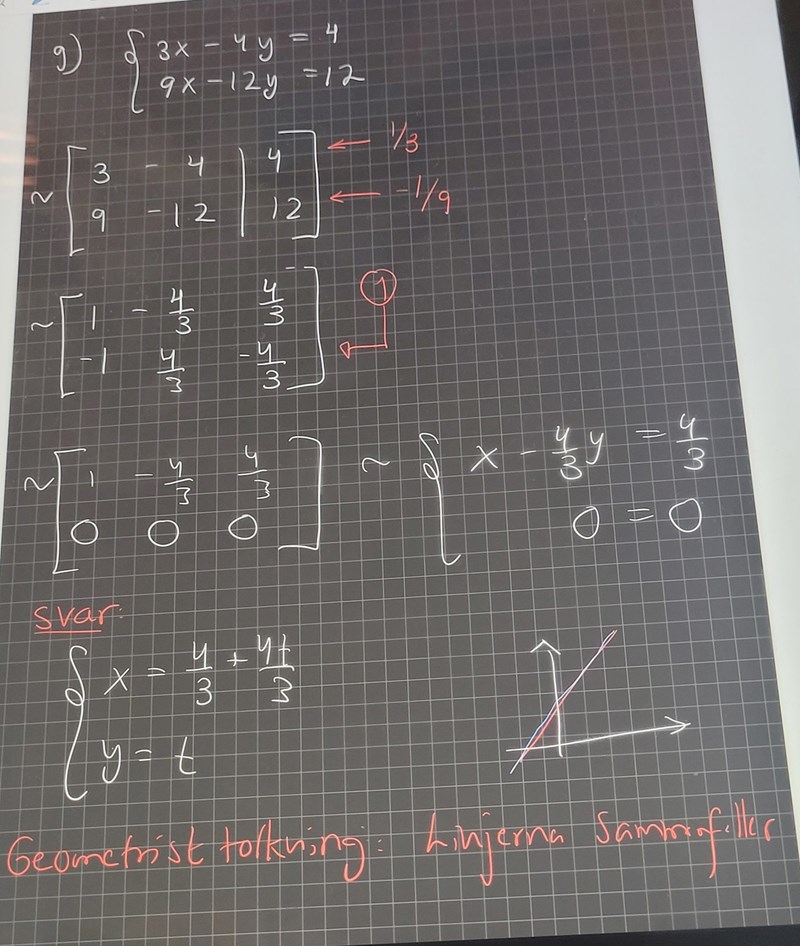 g) { 3x - 4y = 4
9x - 12y = 12
~ [ 3 - 4 | 4 ] ← 1/3
[ 9 - 12 | 12 ] ← -1/9
~ [ 1 - 4/3 4/3 ] ①
[ -1 4/3 -4/3 ]
~ [ 1 - 4/3 4/3 ] ~ { x - 4/3 y = 4/3
[ 0 0 0 ] 0 = 0
svar:
{ x = 4/3 + 4t/3
y = t
Geometrist tolkning: Linjerna Sammrfiller